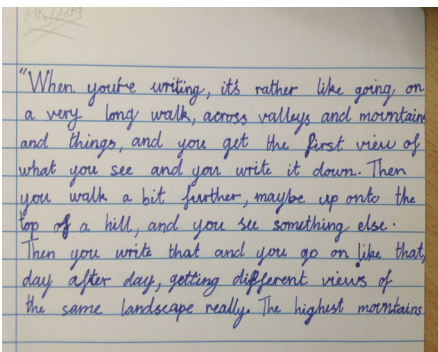 "When you're writing, it's rather like going on
a very long walk, across valleys and mountains
and things, and you get the first view of
what you see and you write it down. Then
you walk a bit further, maybe up onto the
top of a hill, and you see something else.
Then you write that and you go on like that,
day after day, getting different views of
the same landscape really. The highest mountains